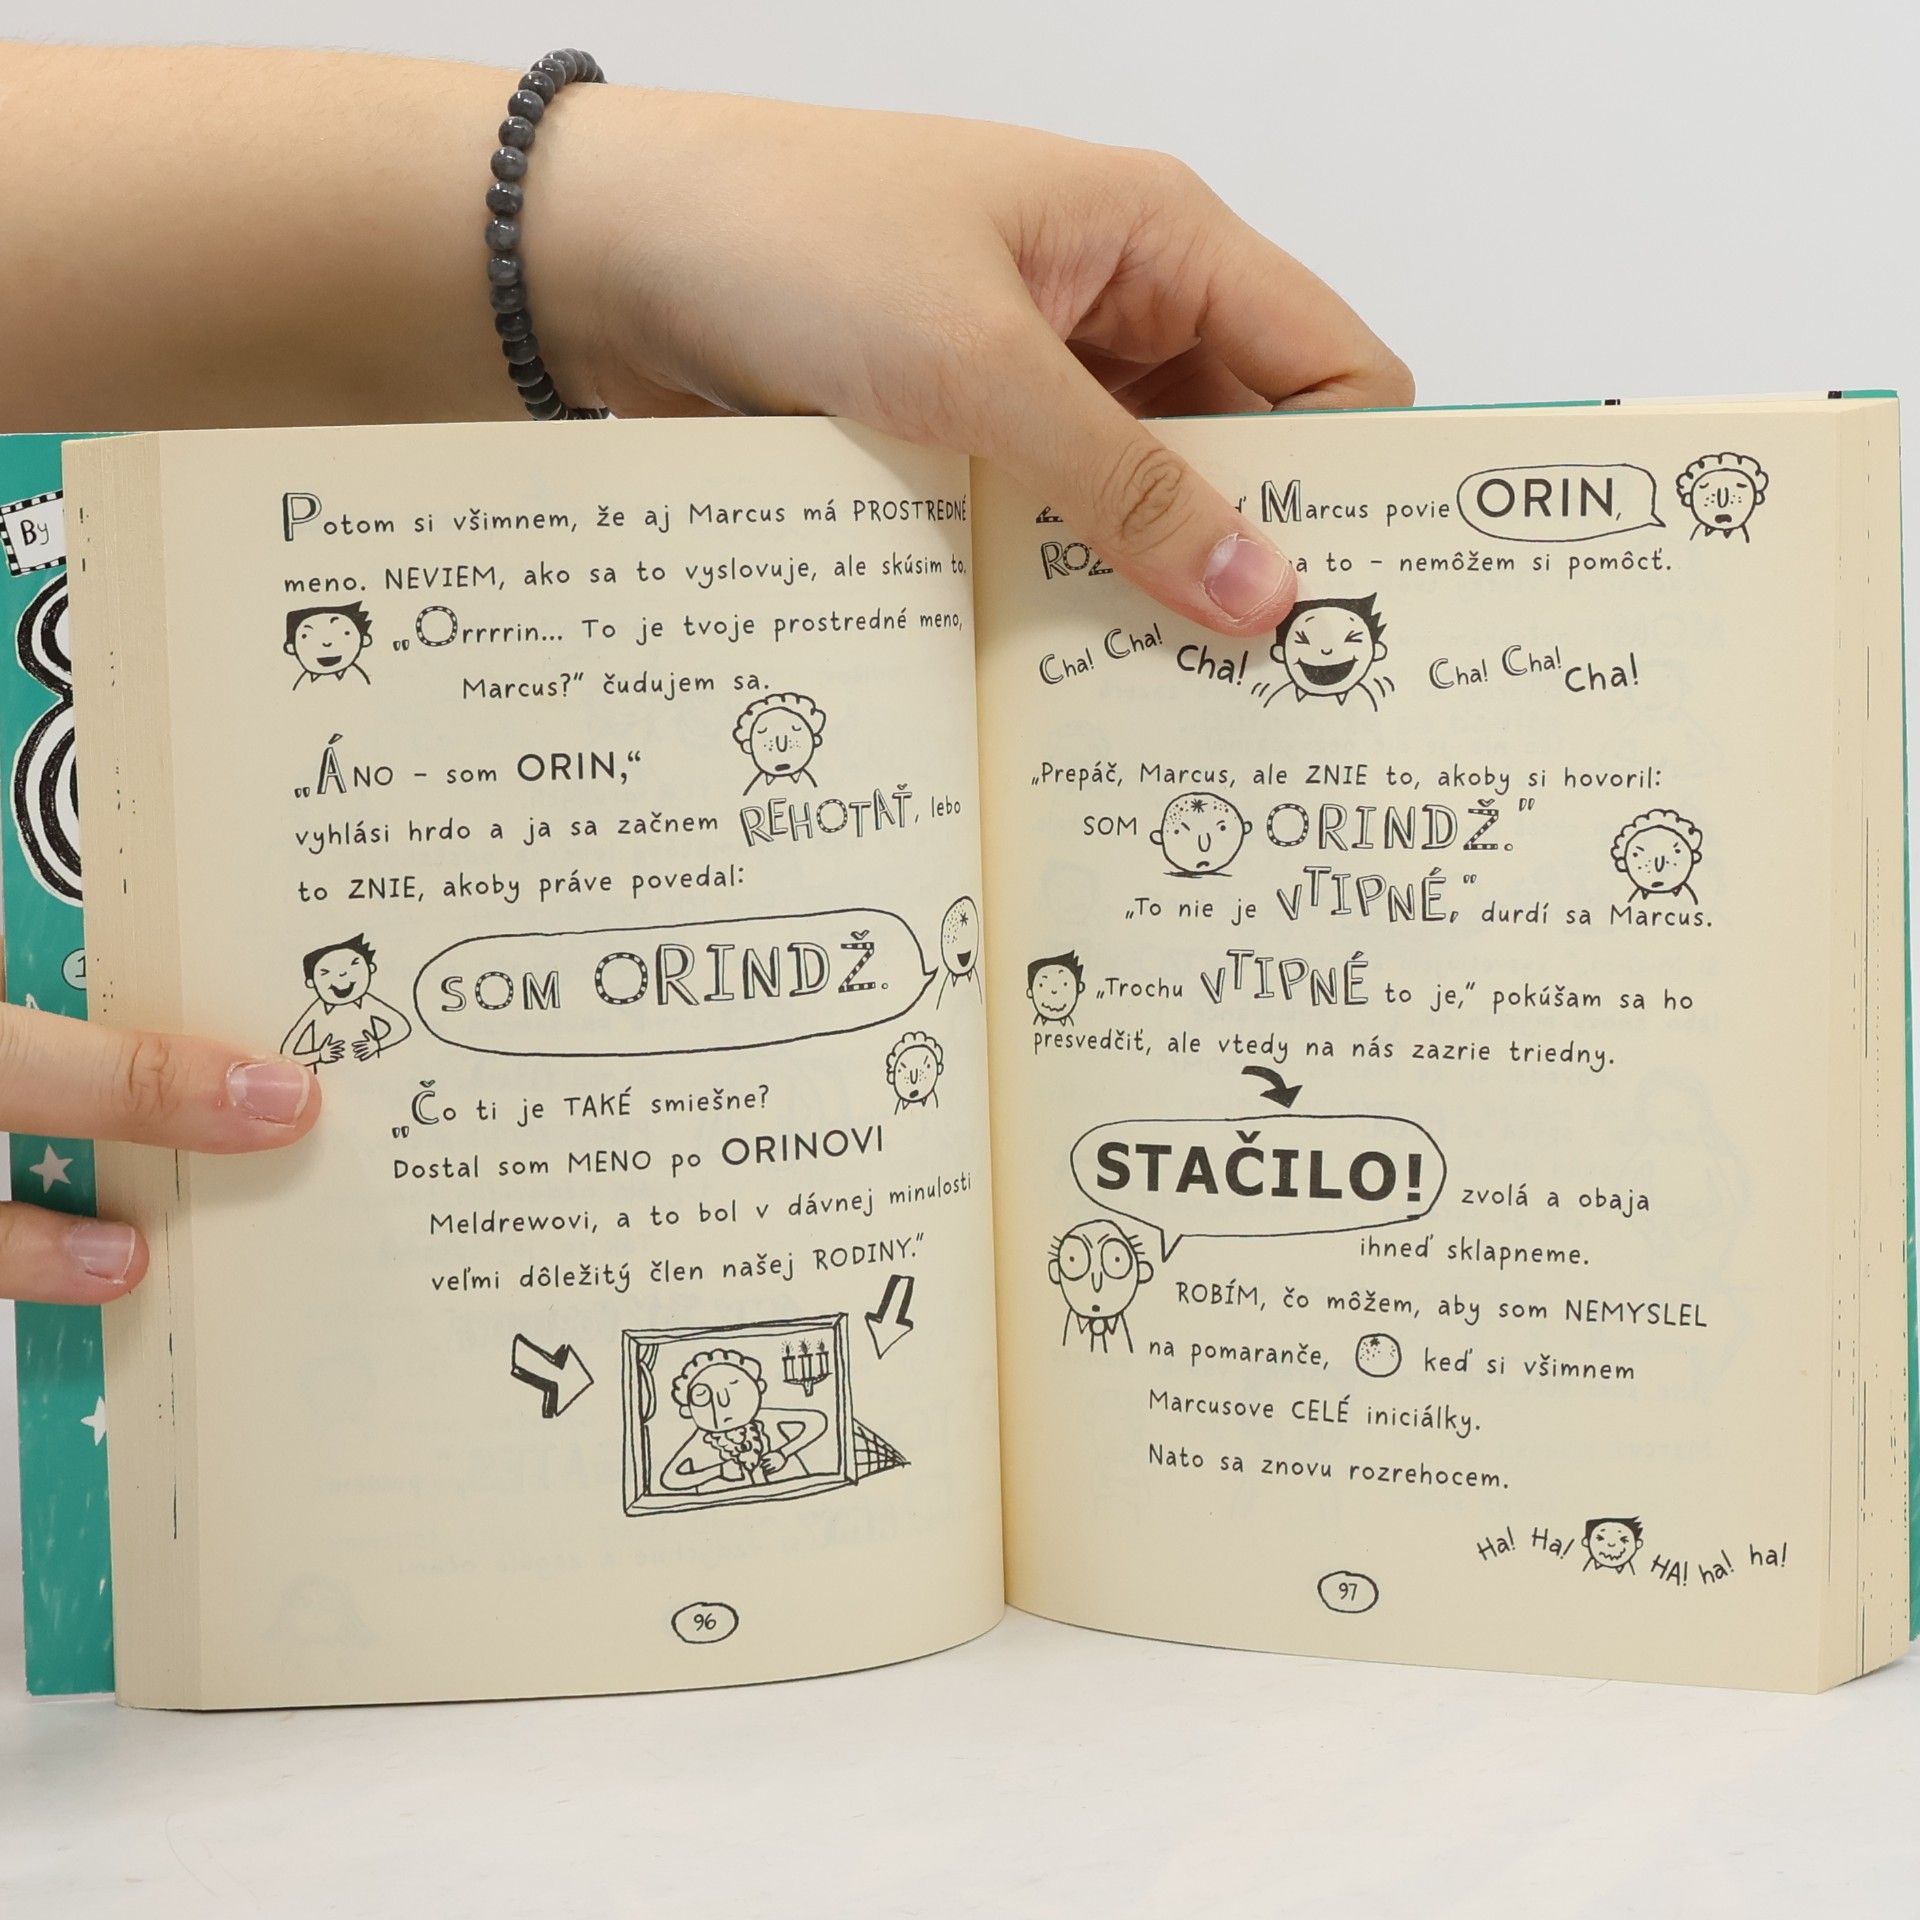 By
Potom si všimnem, že aj Marcus má PROSTREDNÉ
meno. NEVIEM, ako sa to vyslovuje, ale skúsim to.
„Orrrrin... To je tvoje prostredné meno,
Marcus?“ čudujem sa.
„ÁNO – som ORIN,“
vyhlási hrdo a ja sa začnem REHOTAŤ, lebo
to ZNIE, akoby práve povedal:
SOM ORINDŽ.
„Čo ti je TAKÉ smiešne?
Dostal som MENO po ORINOVI
Meldrewovi, a to bol v dávnej minulosti
veľmi dôležitý člen našej RODINY.“
96
Marcus povie ORIN,
to – nemôžem si pomôcť.
Cha! Cha! Cha! Cha! Cha! Cha!
„Prepáč, Marcus, ale ZNIE to, akoby si hovoril:
SOM ORINDŽ.“
„To nie je VTIPNÉ,“ durdí sa Marcus.
„Trochu VTIPNÉ to je,“ pokúšam sa ho
presvedčiť, ale vtedy na nás zazrie triedny.
STAČILO! zvolá a obaja
ihneď sklapneme.
ROBÍM, čo môžem, aby som NEMYSLEL
na pomaranče, keď si všimnem
Marcusove CELÉ iniciálky.
Nato sa znovu rozrehocem.
Ha! Ha! HA! ha! ha!
97